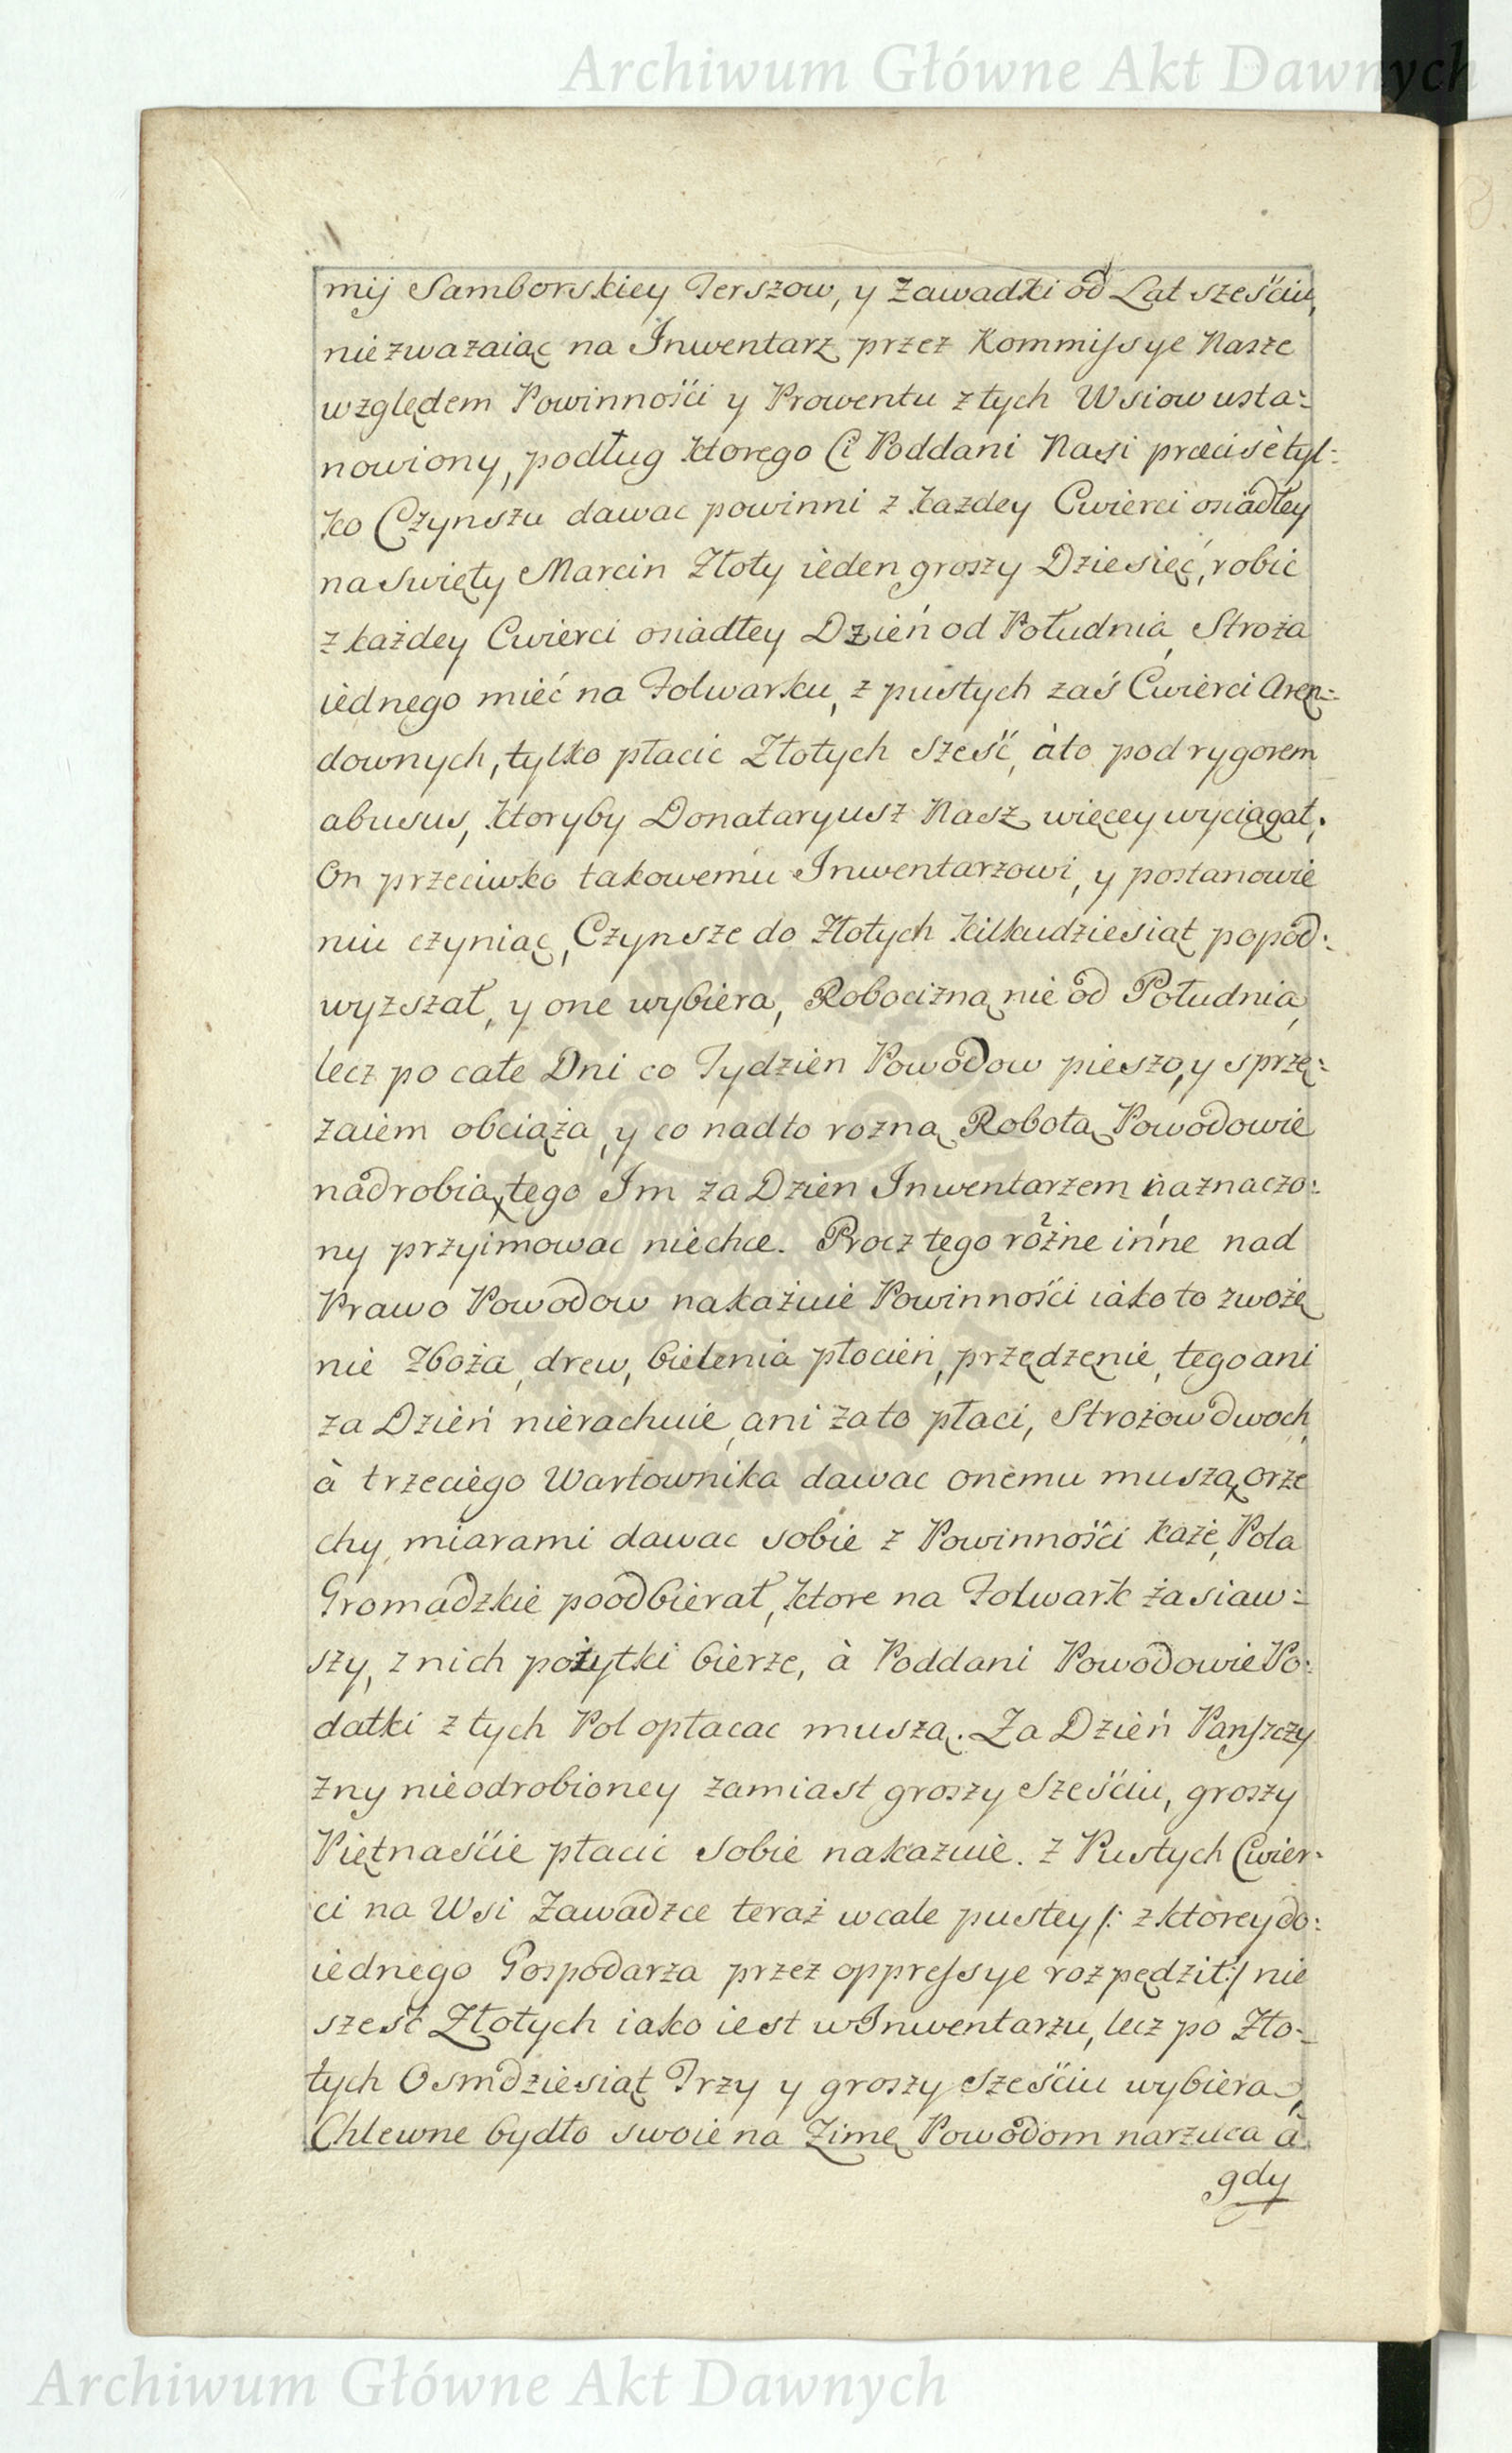 Archiwum Główne Akt Dawnych
mij Samborskiey Terszow, y Zawadki od Lat sześciu,
niezwazaiąc na Inwentarz przez Kommissye Nasze
względem Powinnośći y Prowentu z tych Wsiow usta:
nowiony, podług ktorego Ci Poddani Nasi præcisè tyl:
ko Czynszu dawac powinni z kazdey Cwierci osiadłey
na Swięty Marcin Złoty ieden groszy Dziesięć, robic
z każdey Cwierci osiadłey Dzień od Południa, Stroża
iednego mieć na Folwarku, z pustych zaś Cwierci Aren:
downych, tylko płacic Złotych sześć, à to pod rygorem
abusus, ktoryby Donataryusz Nasz więcey wyciągał.
On przeciwko takowemu Inwentarzowi, y postanowie
niu czyniąc, Czynsze do Złotych kilkudziesiąt popod:
wyzszał, y one wybiera, Robocizną nie od Południa,
lecz po całe Dni co Tydzien Powodow pieszo, y sprzę:
zaiem obciąża, y co nadto rozną Robotą Powodowie
nadrobią, tego Im za Dzien Inwentarzem naznaczo:
ny przyimowac niechce. Procz tego różne inne nad
Prawo Powodow nakażuie Powinnośći iako to zwożę
nie Zboża, drew, bielenia płocień, przędzęnie, tego ani
za Dzień nierachuie, ani za to płaci, Strożow dwoch,
à trzeciego Wartownika dawac onemu muszą, orze
chy miarami dawac sobie z Powinnośći każe, Pola
Gromadzkie poodbierał, ktore na Folwark zasiaw:
szy, z nich pożytki bierze, à Poddani Powodowie Po:
datki z tych Pol opłacac muszą. Za Dzień Panszczy
zny nieodrobioney zamiast groszy sześciu, groszy
Piętnaśćie płacic sobie nakazuie. Z Pustych Cwier:
ci na Wsi Zawadzce teraż wcale pustey /: z ktorey do:
iednego Gospodarza przez oppressye rozpędził :/ nie
sześć Złotych iako iest w Inwentarzu, lecz po Zło:
tych Osmdziesiąt Trzy y groszy sześciu wybiera,
Chlewne bydło swoie na Zimę Powodom narzuca à
gdy
Archiwum Główne Akt Dawnych